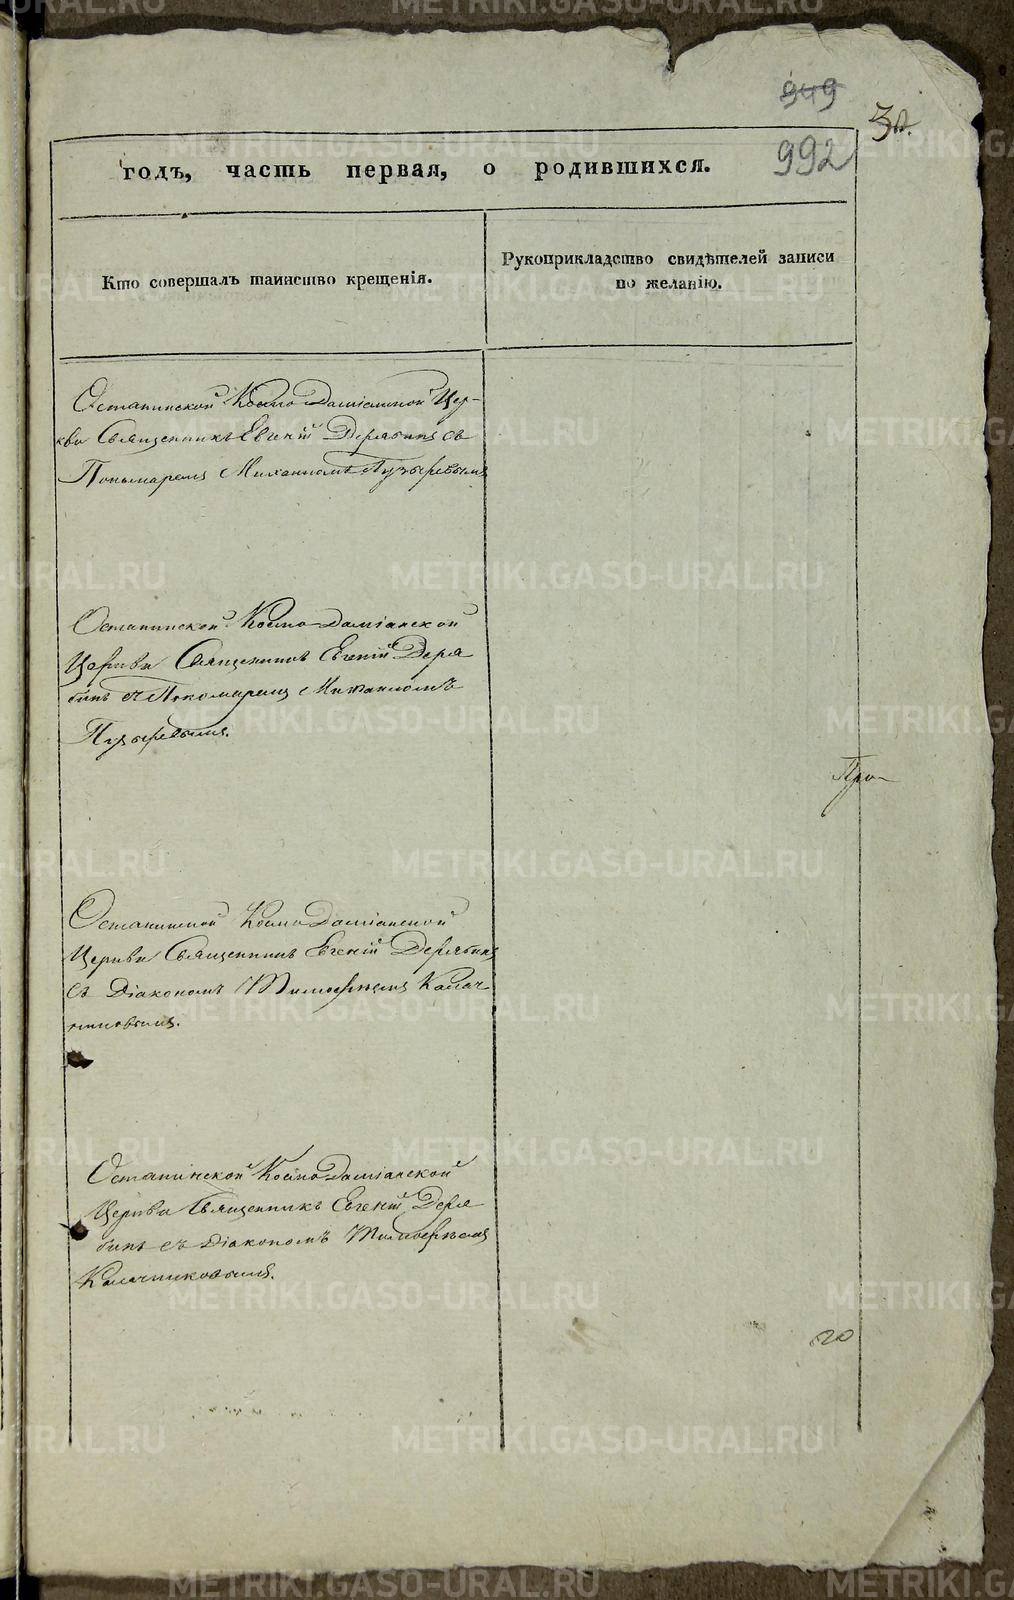 949
30.
992
годъ, часть первая, о родившихся.
Кто совершалъ таинство крещенія.
Рукоприкладство свидѣтелей записи
по желанію.
Останинской Космо Даміанской Цер-
кви Священникъ Евгеній Дерябинъ съ
Пономаремъ Михаиломъ Пузыревымъ
Останинской Космо Даміанской
Церкви Священникъ Евгеній Деря
бинъ съ Пономаремъ Михаиломъ
Пузыревымъ.
Про-
Останинской Космо Даміанской
Церкви Священникъ Евгеній Дерябинъ
съ Діакономъ Тимофѣемъ Калач-
никовымъ.
Останинской Космо Даміанской
Церкви Священникъ Евгеній Деря
бинъ съ Діакономъ Тимофѣемъ
Калачниковымъ.
METRIKI.GASO-URAL.RU